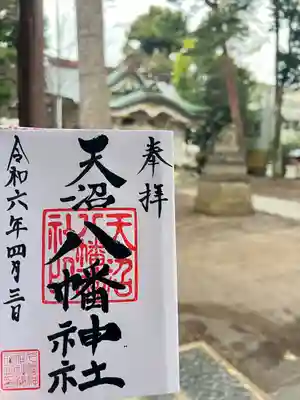 奉拝
天沼八幡神社
天沼
八幡神
社印
令和六年四月三日